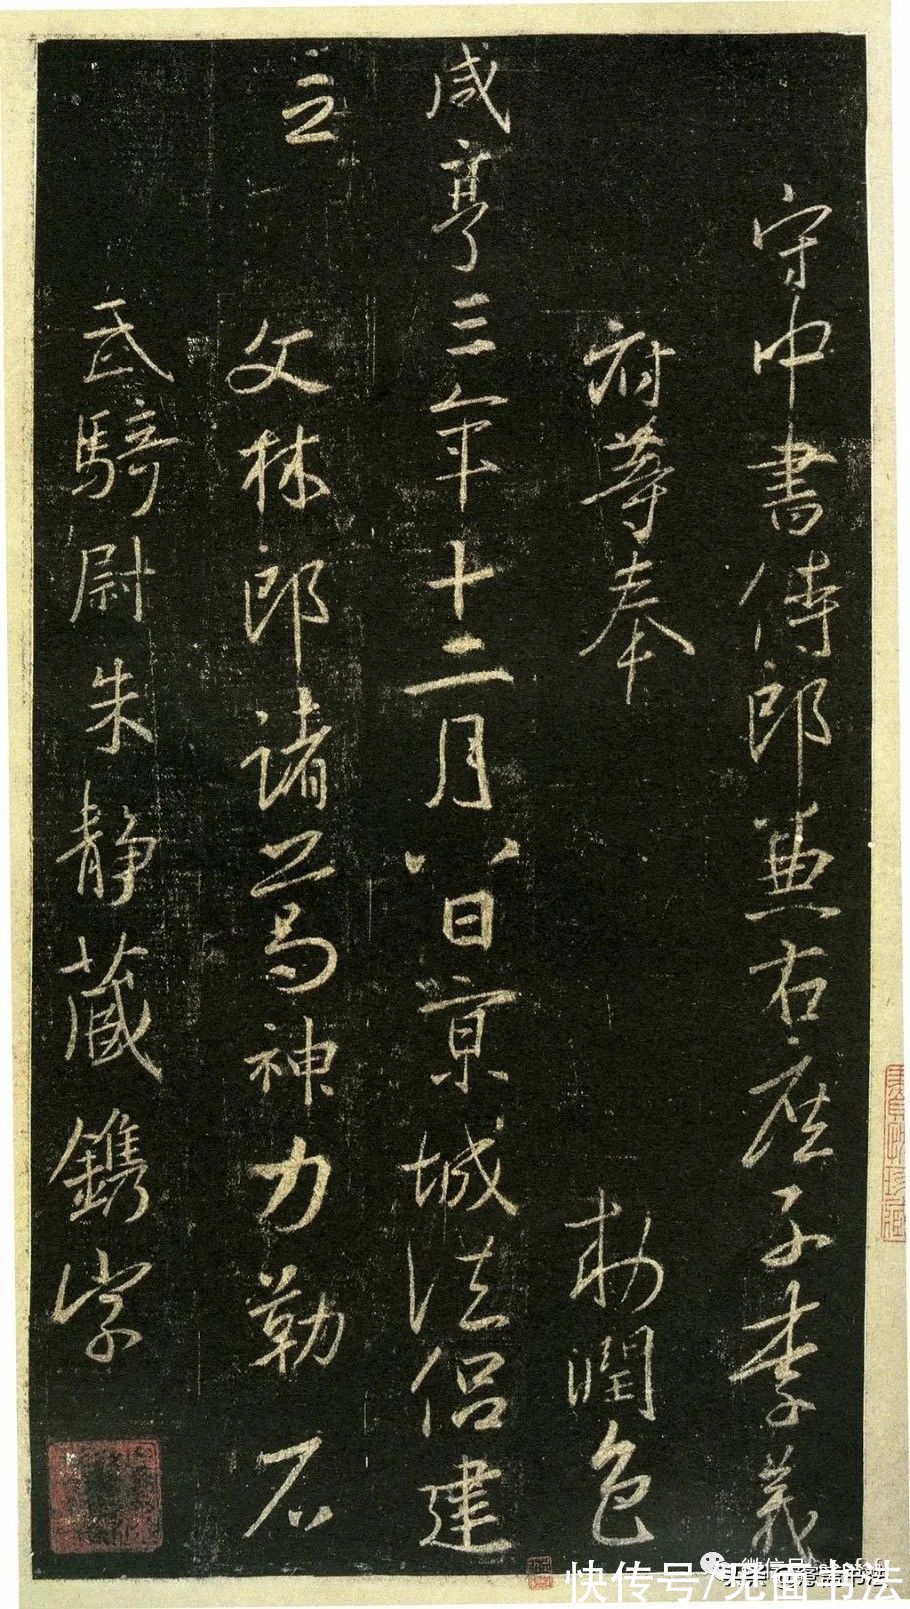 守中書侍郎兼右庶子李義
府等奉　　敕潤色
咸亨三年十二月八日京城法侶建
立　文林郎諸葛神力勒石
武騎尉朱靜藏鐫字
快传号/见面书法